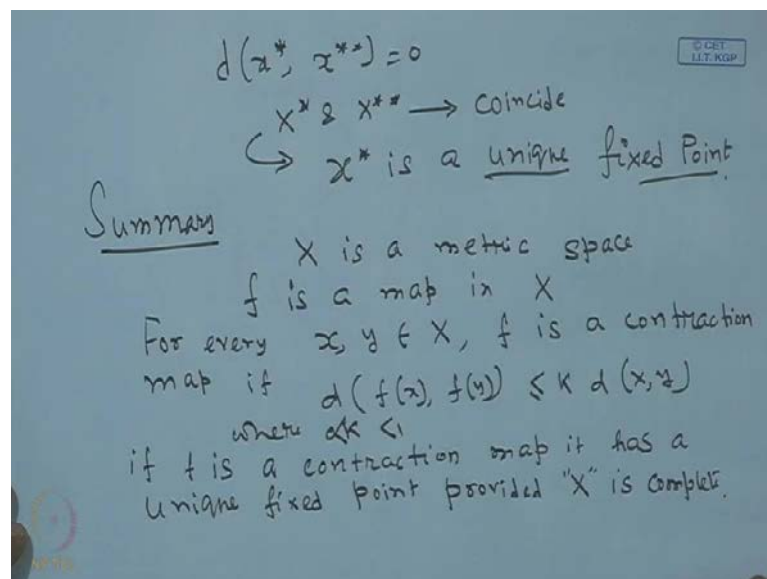 d(x*, x**) = 0
© CET
I.I.T. KGP
x* & x** → coincide
↳ x* is a unique fixed Point.
Summary
X is a metric space
f is a map in X
For every x, y ∈ X, f is a contraction
map if d(f(x), f(y)) ≤ K d(x,y)
where 0<K <1
if f is a contraction map it has a
unique fixed point provided "X" is complete.